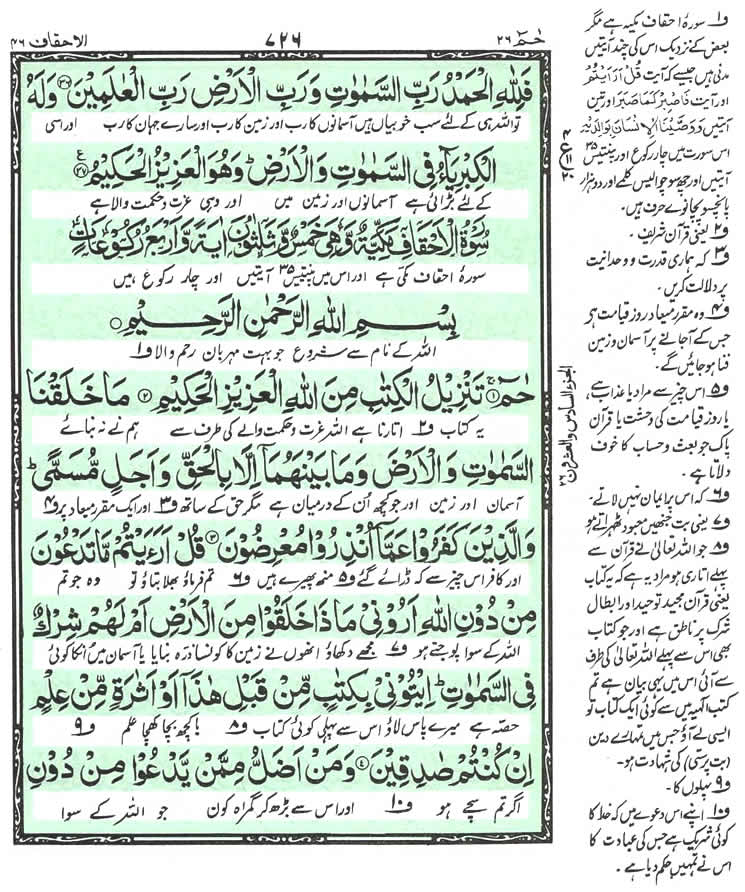 حٰمٓ ٢٦
٧٢٦
الاحقاف ٤٦
فَلِلّٰهِ الْحَمْدُ رَبِّ السَّمٰوٰتِ وَرَبِّ الْاَرْضِ رَبِّ الْعٰلَمِيْنَ ﴿٣٦﴾ وَلَهُ
تو اللہ ہی کے لئے سب خوبیاں ہیں آسمانوں کا رب اور زمین کا رب اور سارے جہان کا رب اور اسی
الْكِبْرِيَآءُ فِي السَّمٰوٰتِ وَالْاَرْضِ ۪ وَهُوَ الْعَزِيْزُ الْحَكِيْمُ ﴿٣٧﴾
کے لئے بڑائی ہے آسمانوں اور زمین میں اور وہی عزت و حکمت والا ہے
سُوْرَةُ الْاَحْقَافِ مَكِّيَّةٌ وَّهِيَ خَمْسٌ وَّثَلٰثُوْنَ اٰيَةً وَّاَرْبَعُ رُكُوْعَاتٍ
سورۂ احقاف مکی ہے اور اس میں پینتیس ۳۵ آیتیں اور چار رکوع ہیں
بِسْمِ اللّٰهِ الرَّحْمٰنِ الرَّحِيْمِ
اللہ کے نام سے شروع جو بہت مہربان رحم والا ف۱
حٰمٓ ﴿١﴾ تَنْزِيْلُ الْكِتٰبِ مِنَ اللّٰهِ الْعَزِيْزِ الْحَكِيْمِ ﴿٢﴾ مَا خَلَقْنَا
یہ کتاب ف۲ اتارنا ہے اللہ عزت و حکمت والے کی طرف سے ہم نے نہ بنائے
السَّمٰوٰتِ وَالْاَرْضَ وَمَا بَيْنَهُمَآ اِلَّا بِالْحَقِّ وَاَجَلٍ مُّسَمًّى ؕ
آسمان اور زمین اور جو کچھ ان کے درمیان ہے مگر حق کے ساتھ ف۳ اور ایک مقرر میعاد پر ف۴
وَالَّذِيْنَ كَفَرُوْا عَمَّآ اُنْذِرُوْا مُعْرِضُوْنَ ﴿٣﴾ قُلْ اَرَءَيْتُمْ مَّا تَدْعُوْنَ
اور کافر اس چیز سے کہ ڈرائے گئے ف۵ منھ پھیرے ہیں ف۶ تم فرماؤ بھلا بتاؤ تو وہ جو تم
مِنْ دُوْنِ اللّٰهِ اَرُوْنِيْ مَاذَا خَلَقُوْا مِنَ الْاَرْضِ اَمْ لَهُمْ شِرْكٌ
اللہ کے سوا پوجتے ہو ف۷ مجھے دکھاؤ انھوں نے زمین کا کونسا ذرہ بنایا یا آسمان میں ان کا کوئی
فِي السَّمٰوٰتِ ؕ اِيْتُوْنِيْ بِكِتٰبٍ مِّنْ قَبْلِ هٰذَآ اَوْ اَثٰرَةٍ مِّنْ عِلْمٍ
حصہ ہے میرے پاس لاؤ اس سے پہلی کوئی کتاب ف۸ یا کچھ بچا کھچا علم ف۹
اِنْ كُنْتُمْ صٰدِقِيْنَ ﴿٤﴾ وَمَنْ اَضَلُّ مِمَّنْ يَّدْعُوْا مِنْ دُوْنِ
اگر تم سچے ہو ف۱۰ اور اس سے بڑھ کر گمراہ کون جو اللہ کے سوا
الجزء السادس والعشرون ٢٦
ف۱ سورۂ احقاف مکیہ ہے مگر
بعض کے نزدیک اس کی چند آیتیں
مدنی ہیں جیسے کہ آیت قُلْ اَرَاَيْتُمْ
اور آیت فَاصْبِرْ كَمَا صَبَرَ اور تین
آیتیں وَوَصَّيْنَا الْاِنْسَانَ بِوَالِدَيْهِ
اس سورت میں چار رکوع اور پینتیس ۳۵
آیتیں اور چھ سو چوالیس کلمے اور دو ہزار
پانچسو پچانوے حرف ہیں۔
ف۲ یعنی قرآن شریف۔
ف۳ کہ ہماری قدرت و وحدانیت
پر دلالت کریں۔
ف۴ وہ مقرر میعاد روز قیامت ہے
جس کے آجانے پر آسمان و زمین
فنا ہو جائیں گے۔
ف۵ اس چیز سے مراد یا عذاب ہے
یا روز قیامت کی وحشت یا قرآن
پاک جو بعث و حساب کا خوف
دلاتا ہے۔
ف۶ کہ اس پر ایمان نہیں لاتے۔
ف۷ یعنی بت جنھیں معبود ٹھہراتے ہو
ف۸ جو اللہ تعالیٰ نے قرآن سے
پہلے اتاری ہو مراد یہ ہے کہ یہ کتاب
یعنی قرآن مجید توحید اور ابطال
شرک پر ناطق ہے اور جو کتاب
بھی اس سے پہلے اللہ تعالیٰ کی طرف
سے آئی اس میں یہی بیان ہے تم
کتب الٰہیہ میں سے کوئی ایک کتاب تو
ایسی لے آؤ جس میں تمہارے دین
(بت پرستی) کی شہادت ہو۔
ف۹ پہلوں کا۔
ف۱۰ اپنے اس دعوے میں کہ خدا کا
کوئی شریک ہے جس کی عبادت کا
اس نے تمہیں حکم دیا ہے۔